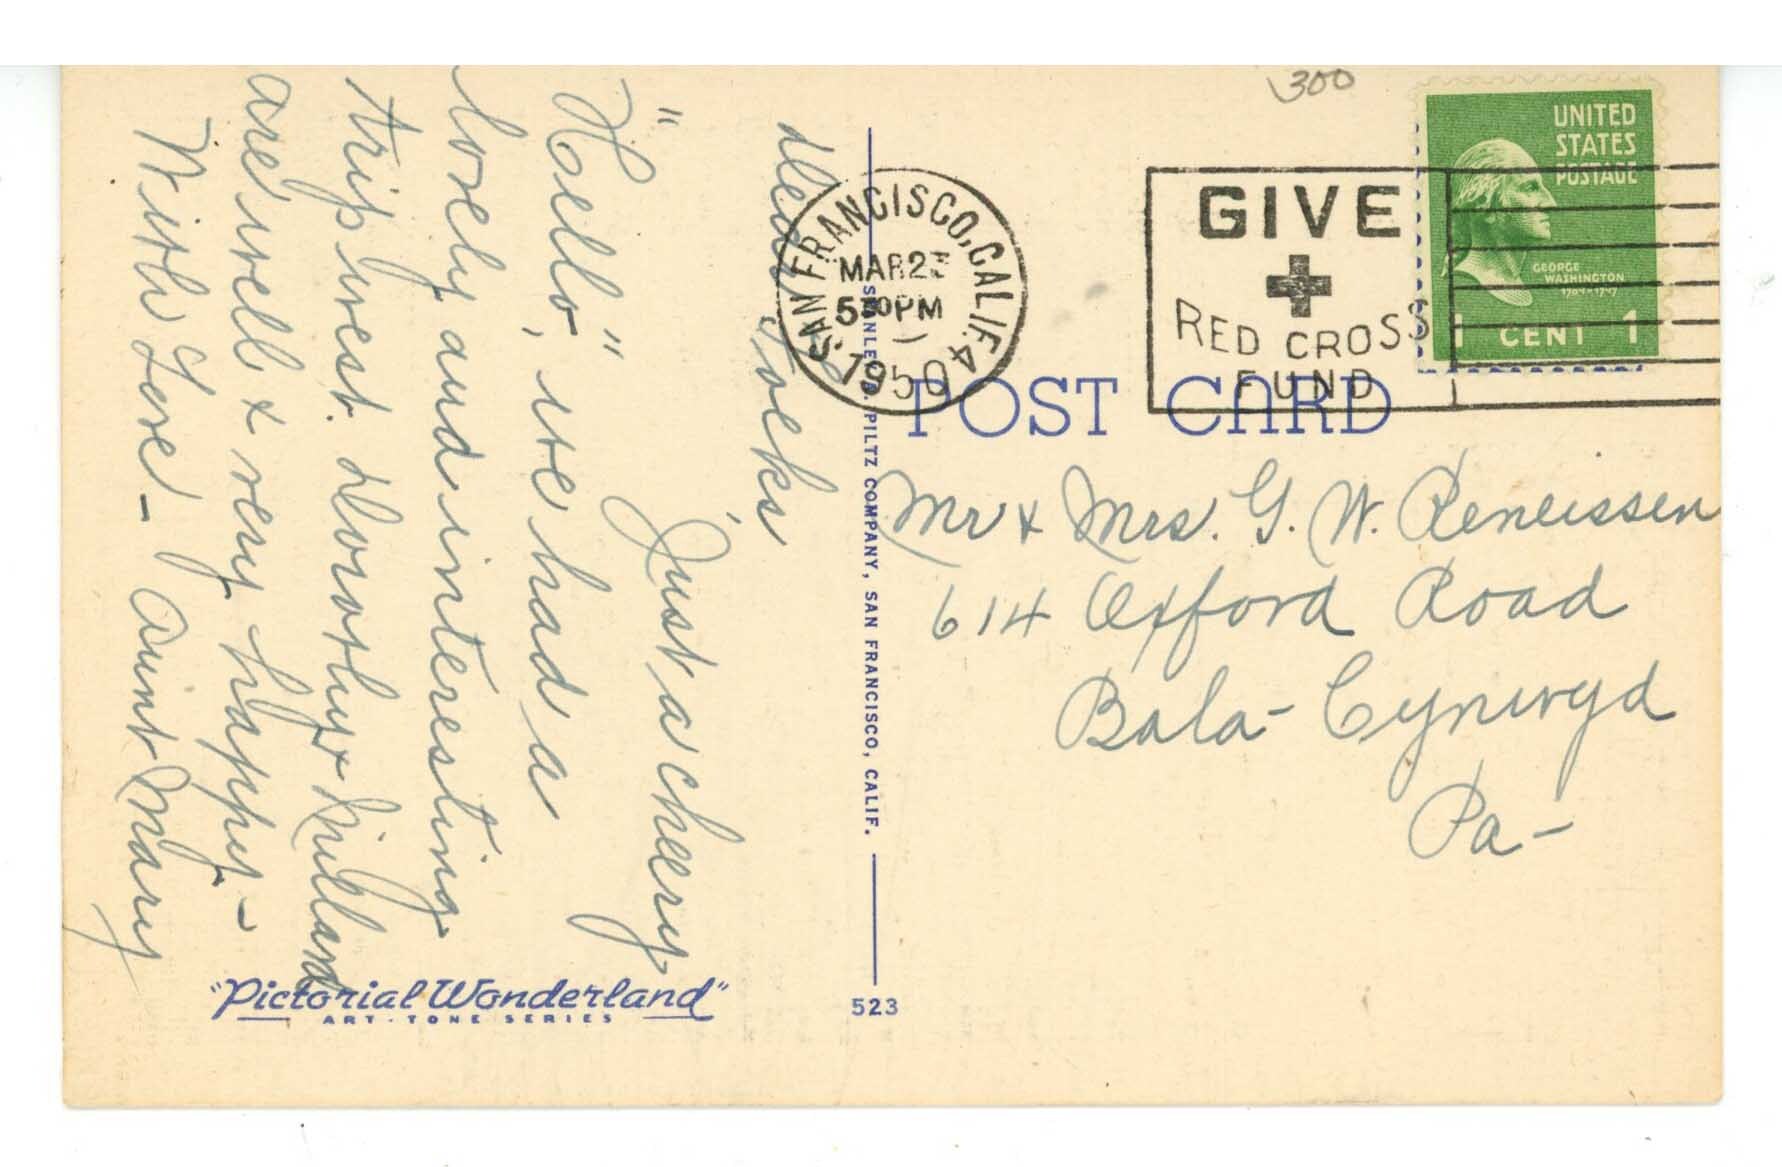 Dear Folks,
Just a cheery
"Hello", we had a
lovely and interesting
trip west. Dorothy & Millard
are well & very happy -
With Love - Aunt Mary
"Pictorial Wonderland"
ART-TONE SERIES
STANLEY A. PILTZ COMPANY, SAN FRANCISCO, CALIF.
523
300
SAN FRANCISCO, CALIF. 4
MAR 23
5 30 PM
1950
GIVE
RED CROSS
FUND
UNITED
STATES
POSTAGE
GEORGE
WASHINGTON
1789-1797
1 CENT 1
POST CARD
Mr & Mrs. G. W. Reneissen
614 Oxford Road
Bala-Cynwyd
Pa-